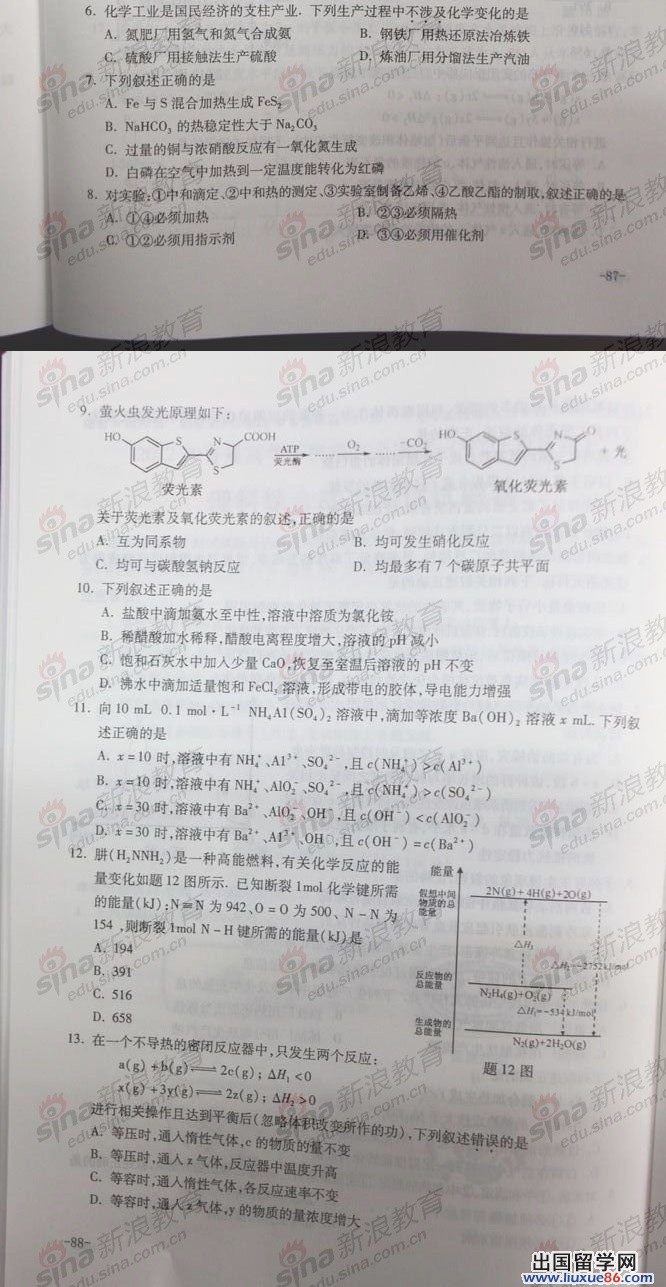 6. 化学工业是国民经济的支柱产业. 下列生产过程中不涉及化学变化的是
A. 氮肥厂用氢气和氮气合成氨 B. 钢铁厂用热还原法冶炼铁
C. 硫酸厂用接触法生产硫酸 D. 炼油厂用分馏法生产汽油
7. 下列叙述正确的是
A. Fe 与 S 混合加热生成 FeS₂
B. NaHCO₃ 的热稳定性大于 Na₂CO₃
C. 过量的铜与浓硝酸反应有一氧化氮生成
D. 白磷在空气中加热到一定温度能转化为红磷
8. 对实验:①中和滴定、②中和热的测定、③实验室制备乙烯、④乙酸乙酯的制取,叙述正确的是
A. ①④必须加热 B. ②③必须隔热
C. ①②必须用指示剂 D. ③④必须用催化剂
-87-
9. 萤火虫发光原理如下:
HO S N COOH S ATP 荧光酶 …… O₂ …… -CO₂ HO S N O S + 光
荧光素 氧化荧光素
关于荧光素及氧化荧光素的叙述,正确的是
A. 互为同系物 B. 均可发生硝化反应
C. 均可与碳酸氢钠反应 D. 均最多有 7 个碳原子共平面
10. 下列叙述正确的是
A. 盐酸中滴加氨水至中性,溶液中溶质为氯化铵
B. 稀醋酸加水稀释,醋酸电离程度增大,溶液的 pH 减小
C. 饱和石灰水中加入少量 CaO,恢复至室温后溶液的 pH 不变
D. 沸水中滴加适量饱和 FeCl₃ 溶液,形成带电的胶体,导电能力增强
11. 向 10 mL 0.1 mol·L⁻¹ NH₄Al(SO₄)₂ 溶液中,滴加等浓度 Ba(OH)₂ 溶液 x mL. 下列叙
述正确的是
A. x=10 时,溶液中有 NH₄⁺、Al³⁺、SO₄²⁻,且 c(NH₄⁺)>c(Al³⁺)
B. x=10 时,溶液中有 NH₄⁺、AlO₂⁻、SO₄²⁻,且 c(NH₄⁺)>c(SO₄²⁻)
C. x=30 时,溶液中有 Ba²⁺、AlO₂⁻、OH⁻,且 c(OH⁻)<c(AlO₂⁻)
D. x=30 时,溶液中有 Ba²⁺、Al³⁺、OH⁻,且 c(OH⁻)=c(Ba²⁺)
12. 肼(H₂NNH₂)是一种高能燃料,有关化学反应的能
量变化如题 12 图所示. 已知断裂 1mol 化学键所需
的能量(kJ):N≡N 为 942、O=O 为 500、N-N 为
154,则断裂 1mol N-H 键所需的能量(kJ)是
A. 194
B. 391
C. 516
D. 658
能量
假想中间
物质的总
能量
2N(g)+4H(g)+2O(g)
△H₃
△H₂=-2752kJ/mol
反应物的
总能量
N₂H₄(g)+O₂(g)
△H₁=-534kJ/mol
生成物的
总能量
N₂(g)+2H₂O(g)
题 12 图
13. 在一个不导热的密闭反应器中,只发生两个反应:
a(g)+b(g)⇌2c(g);△H₁<0
x(g)+3y(g)⇌2z(g);△H₂>0
进行相关操作且达到平衡后(忽略体积改变所作的功),下列叙述错误的是
A. 等压时,通入惰性气体,c 的物质的量不变
B. 等压时,通入 z 气体,反应器中温度升高
C. 等容时,通入惰性气体,各反应速率不变
D. 等容时,通入 z 气体,y 的物质的量浓度增大
-88-
sina新浪教育
edu.sina.com.cn
出国留学网
www.liuxue86.com